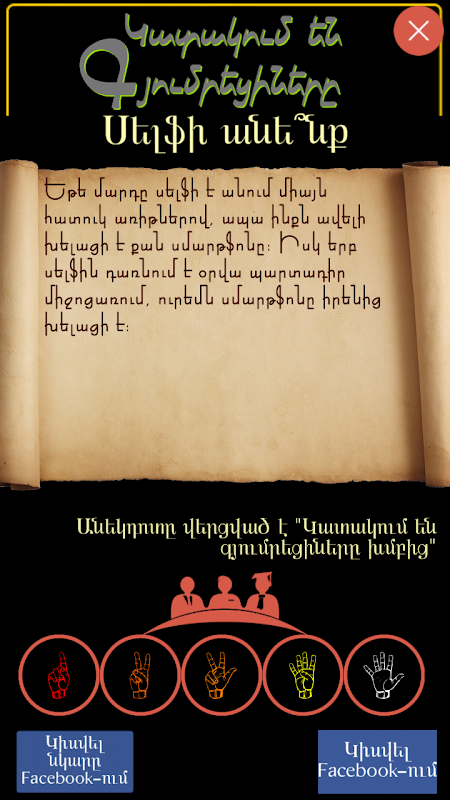 Կատակում են
Գյումրեցիները
Սելֆի անե՞նք
Եթե մարդը սելֆի է անում միայն
հատուկ առիթներով, ապա ինքն ավելի
խելացի է քան սմարթֆոնը: Իսկ երբ
սելֆին դառնում է օրվա պարտադիր
միջոցառում, ուրեմն սմարթֆոնը իրենից
խելացի է:
Անեկդոտը վերցված է "Կատակում են
գյումրեցիները խմբից"
Կիսվել
նկարը
Facebook-ում
Կիսվել
Facebook-ում